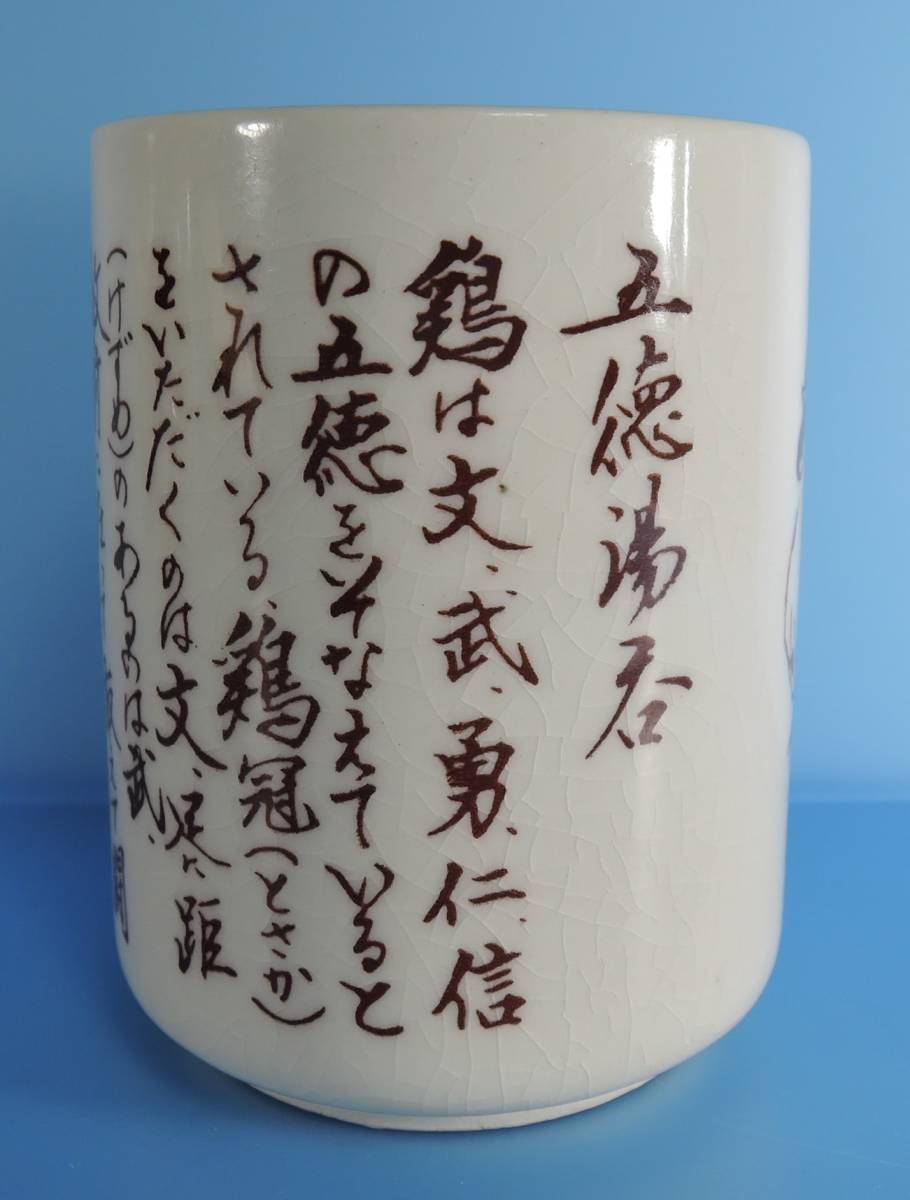 五徳湯呑
鶏は文、武、勇、仁、信
の五徳をそなえていると
されている、鶏冠(とさか)
をいただくのは文、足に距
(けずめ)のあるのは武、
闘